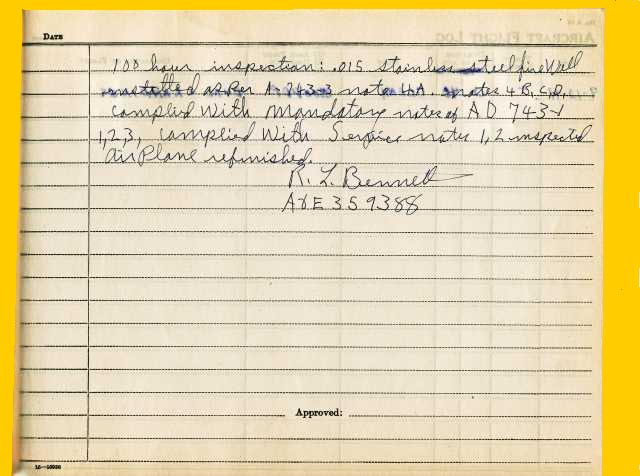 DATE
100 hour inspection: .015 stainless steel fire Wall
installed as Per A-743-3 note 4A. notes 4 B, C, D,
Complied With Mandatory notes of AD 743-1
1,2,3, Complied With Service notes 1, 2 inspected
airPlane refinished.
R. L. Bennett
A&E 359388
Approved: